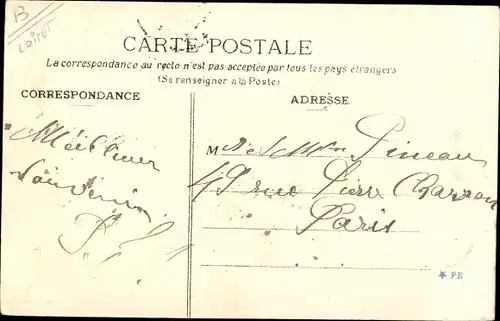 B
Loiret
CARTE POSTALE
La correspondance au recto n'est pas acceptée par tous les pays étrangers
(Se renseigner à la Poste)
CORRESPONDANCE
ADRESSE
Meilleur
Souvenir
M Pineau
49 rue Pierre Charron
Paris
P B